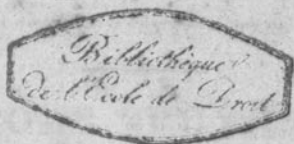 Bibliothèque
de l'Ecole de Droit